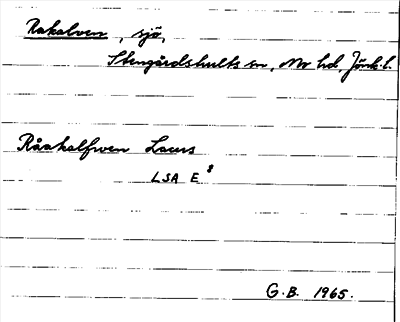 Rakalven, sjö,
Stengårdshults sn, Mo hd, Jönk. l.
Råakalfwen Lacus
LSA E 8
G.B. 1965.